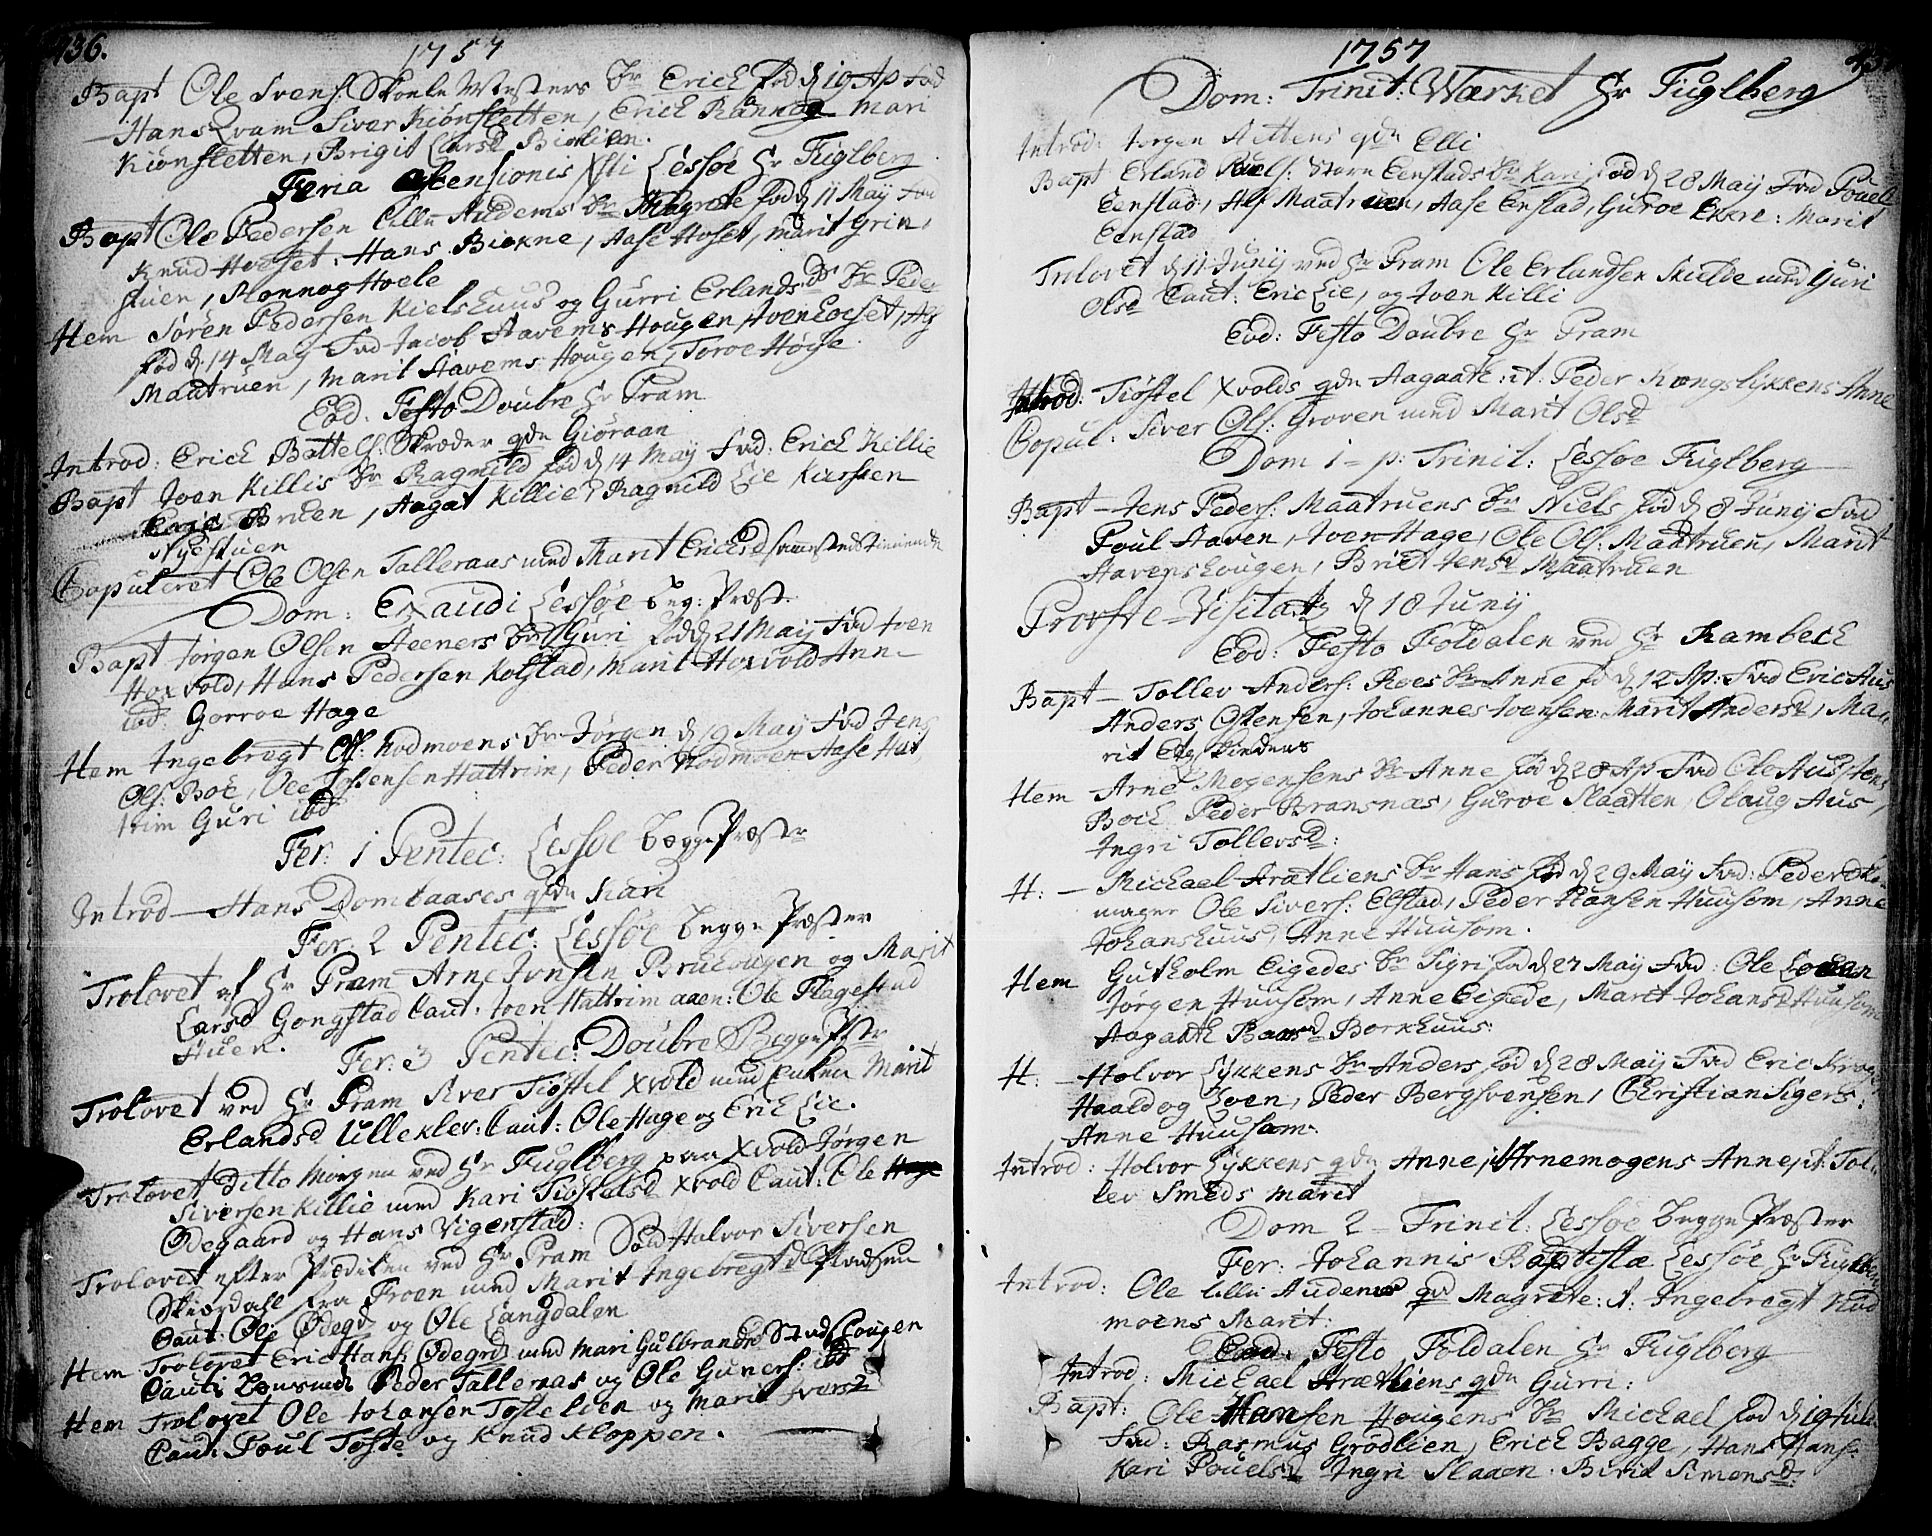 136.
1757
Bapt Ole Svens: Skoele Mesters Br Erich fød d 10 Ap Fad
Hans Qvam Siver Kiønsletten, Erich Rannog Mari
Kiønsletten, Brigit Larsd Biølien.
Feria Ascensionis Xsti Lessøe Hr Fuglberg
Bapt Ole Pedersen Lille Audems Br Magrete fød d 11 May Fad
Knud Hoeset, Hans Biøkne, Aase Hoset, Marit Grin
stuen, Ronnog Hoele
Hem Søren Pedersen Kielshuus og Gurri Erlandsd Br Peder
fød d. 14 May Fad Jacob Stavems Hougen, Iven Loeset, Alf
Maatruen, Marit Stavems Hougen, Toroe Høge.
Eod. Festo Doubre Hr Pram
Introd: Erich Battels: Skræder qde Giøraan
Bapt Joen Killis Br Ragnild fød d 14 May Fad: Erich Killie
Eric Bruen, Aagat Killie, Ragnild Lie Kiersten
Nyestuen
Copuleret Ole Olsen Talleraas med Marit Ericsd
Dom: Exaudi Lessøe beg: Præst.
Bapt Jørgen Olsen Steeners Br Guri fød d 21 May Fad Joen
Horvold, Hans Pedersen Kolstad, Marit Horvold Anne
ibd: Gorroe Hage
Hem Ingebregt Ols: Nodmoens Br Jørgen d 19 May Fad Jens
Ols: Boe, Ole Johensen Hattrim, Peder Nodmoen Aase Hat
trim Guri ibd
Fer: 1 Pentec: Lessøe begge Præster
Introd Hans Dombaases qde Kari
Fer: 2 Pentec: Lessøe begge Præster
Trolovet af Hr Pram Arne Jonsen Bruhougen og Marit
Larsd Gongstad Caut: Joen Hattrim Ole Flagestad
Stuen.
Fer: 3 Pentec: Doubre Begge Pstr
Trolovet ved Hr Pram Siver Tiøstel Xvold med Enken Marit
Erlandsd Ullekler: Caut: Ole Hage og Erich Lie.
Trolovet ditto Morgen ved Hr Fuglberg paa Xvold Jørgen
Siversen Killie med Kari Tiøstelsd Xvold Caut: Ole Hage
Ødegaard og Hans Vigenstad:
Trolovet efter Prædiken ved Hr Pram Halvor Siversen
Skiordahl fra Froen med Marit Ingebregtsd
Caut: Ole Ødegd og Ole Langdalen
Hem Trolovet Eric Hans: Ødegrd med Mari Gulbrandsd Stads hougen
Caut: Peder Talleraas og Ole Guners: ibd
Hem Trolovet Ole Johansen Tofte lien og Marit Iversd
Caut: Poul Tofte og Knud Kloppen.
1757
Dom: Trinit: Wærket Hr Fuglberg
Introd: Jorgen Stettens qde Elli
Bapt Erland Poels: Store Eenstads Br Kari, fød d 28 May Fad Pouel
Eenstad, Alf Maatruen, Aase Enstad, Guroe Ekre: Marit
Eenstad
Trolovet d 11 Junij ved Hr Pram Ole Erlandsen Skielde med Guri
Olsd Caut: Eric Lie, og Joen Killi
Eod: Festo Doubre Hr Pram
Introd: Tiøstel Xvolds qde Aagaate: it: Peder Kongslikkens Anne
Copul: Siver Ols: Groven med Marit Olsd
Dom 1 p: Trinit: Lessøe Fuglberg
Bapt Jens Peders: Maatruens Br Niels fød d 8 Junij Fad
Poul Staven, Joen Hage, Ole Ols: Maatruen, Marit
Stavenshougen, Briet Jensd Maatruen
Proste Visitatz d 18 Junij
Eod: Festo Foldalen ved Hr Rambech
Bapt Tollev Anders: Roes Br Anne fd d 12 Ap: Fad Eric Aus
Anders Ostensen, Johannes Joensen Marit Andersd, Ma
rit
Hem Arne Mogensens Br Anne fød d 28 Ap Fad Ole Austens
Boch Peder Bransnæs, Guroe Slaatten, Olaug Aus
Ingri Tollevsd:
H: Michael Strætliens Br Hans fød d 29 May Fad: Peder Sko
mager Ole Sivers: Elstad, Peder Hansen Huusom, Anne
Johanshuus, Anne Huusom.
Hem Gutholm Eigedes Br Sigri fød d 27 May Fad: Ole
Jørgen Huusom, Anne Eigede, Marit Johansd Huusom
Aagathe Baarsd Borkhuus:
H: Halvor Lykkens Br Anders fød d 28 May Fad Eric Krog
Haaldog Loen, Peder Bergsvensen, Christian Sigers:
Anne Huusom.
Introd: Halvor Lykkens qde Anne, it Arne mogens Anne, it: Tol
lev Smeds Marit
Dom 2 Trinit: Lessøe begge Præster
Fer: Johannis Baptistæ Lessøe Hr Fuglberg
Introd: Ole Lille Audems qde Magrete: it: Ingebregt Nud
moens Marit:
Eod. Festo Foldalen Hr Fuglberg
Introd: Michael Strætliens qde Gurri:
Bapt: Ole Hansen Hougens Br Michael fød d 19 Juni
Fad: Rasmus Grødlien, Erich Bagge, Hans Hans:
Kari Pouelsd Ingri Slaaen Birit Simonsd: